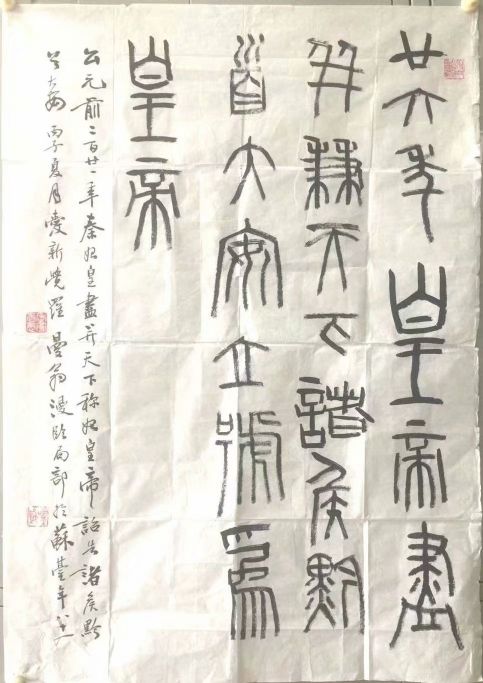 廿六年皇帝盡
并兼天下諸侯黔
首大安立號爲
皇帝
公元前二百廿一年秦始皇盡并天下称始皇帝詔告諸侯黔
首大安 丙子夏月愛新覺羅曼翁漫臨局部於蘇臺年八一